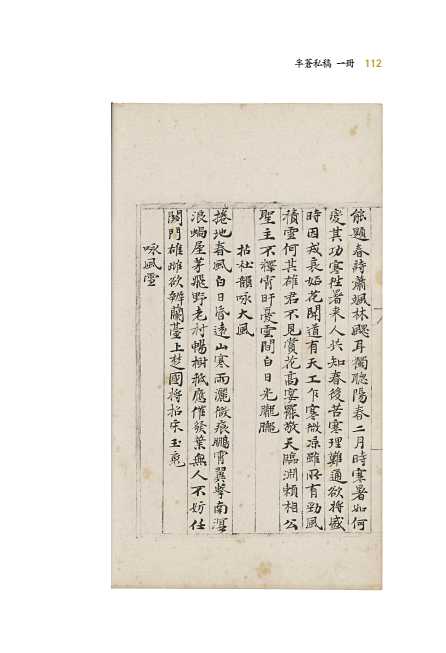 半蒼私稿 一冊 112
能題春詩蕭颯林颸耳獨聽陽春二月時寒暑如何
度其功寒往暑来人共知春後苦寒理難通欲将盛
時因戒哀姤花開道有天工乍寒微凉雖所有勁風
積雪何其雄君不見賞花高宴罷敬天臨淵頼相公
聖主不釋宵旰憂雲間白日光朧朧
拈杜韻咏大風
捲地春風白日昏遠山寒雨灑微痕鵬霄翼擊南溟
浪蝸屋茅飛野老村暢樹秪應催發葉無人不妨任
關門雄雌欲辨蘭䑓上楚國将招宋玉䰟
咏風雪